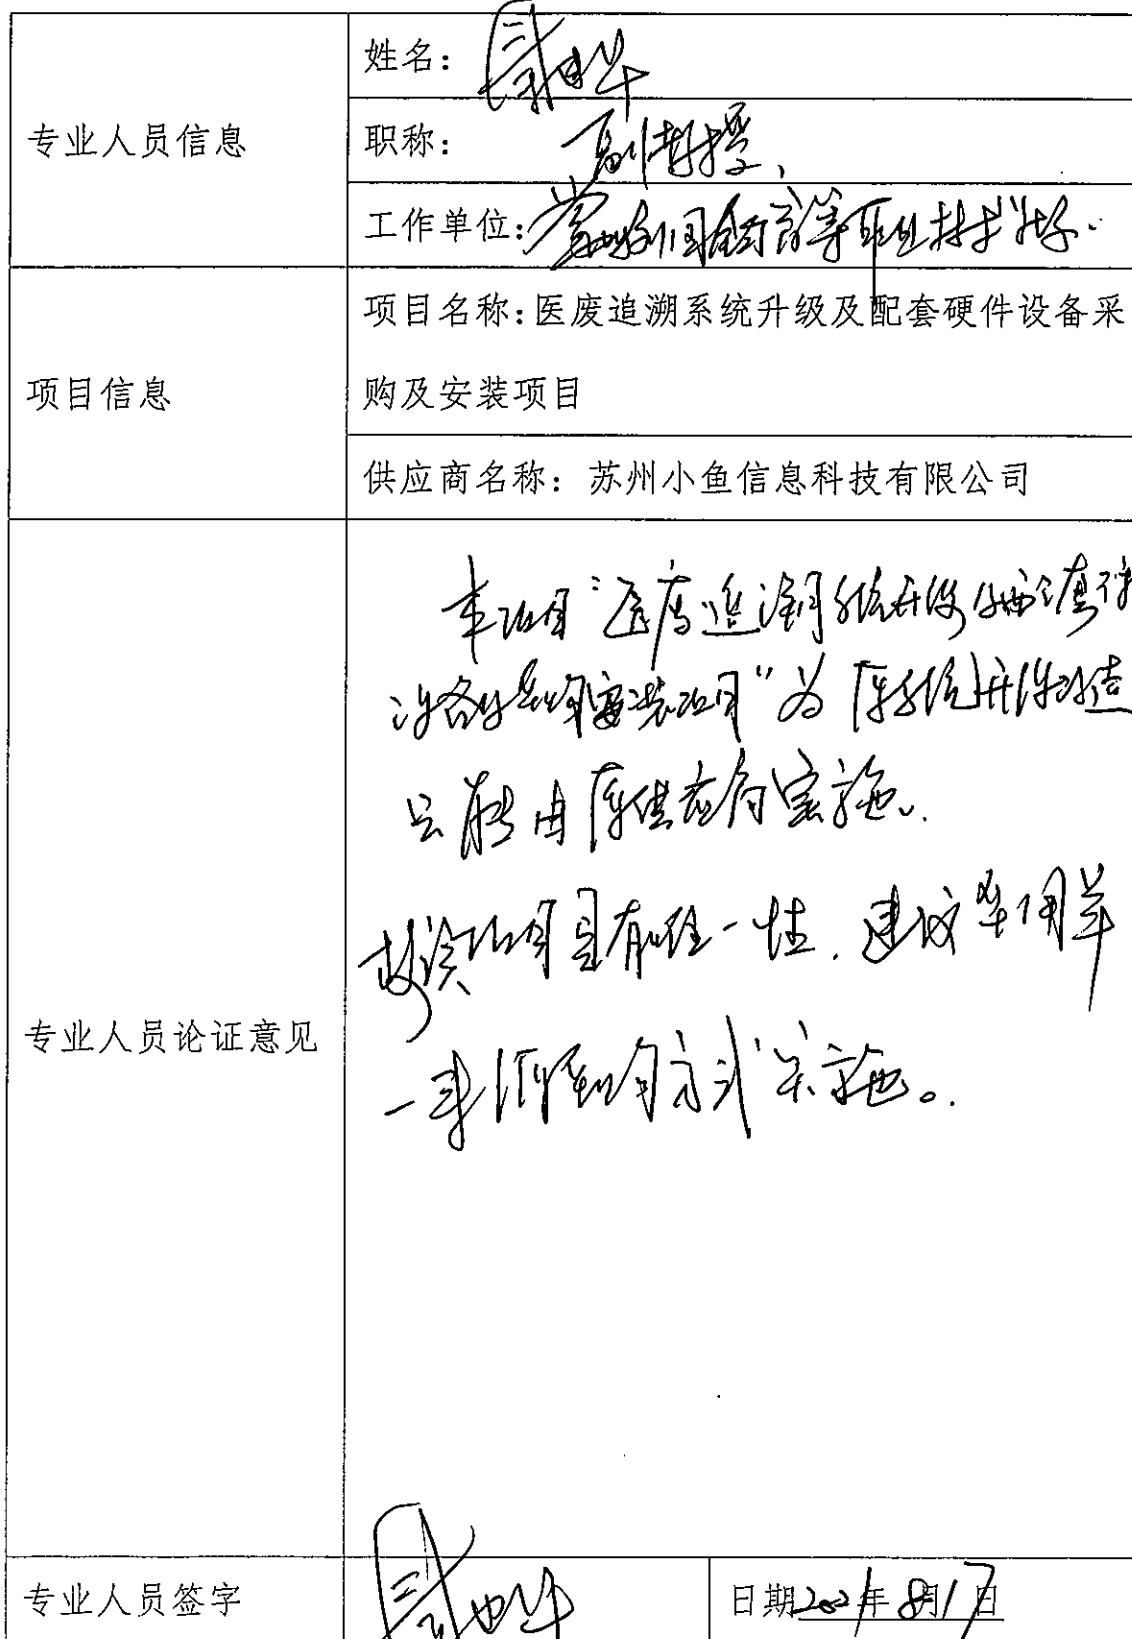 专业人员信息
姓名：
职称： 副教授
工作单位： 高等职业技术
项目信息
项目名称:医废追溯系统升级及配套硬件设备采
购及安装项目
供应商名称：苏州小鱼信息科技有限公司
专业人员论证意见
本项目“医废追溯系统升级及配套硬件
设备采购及安装项目”为原系统升级改造
只能由原供应商实施。
故该项目具有唯一性，建议采用单
一来源采购方式实施。
专业人员签字
日期2021年8月17日